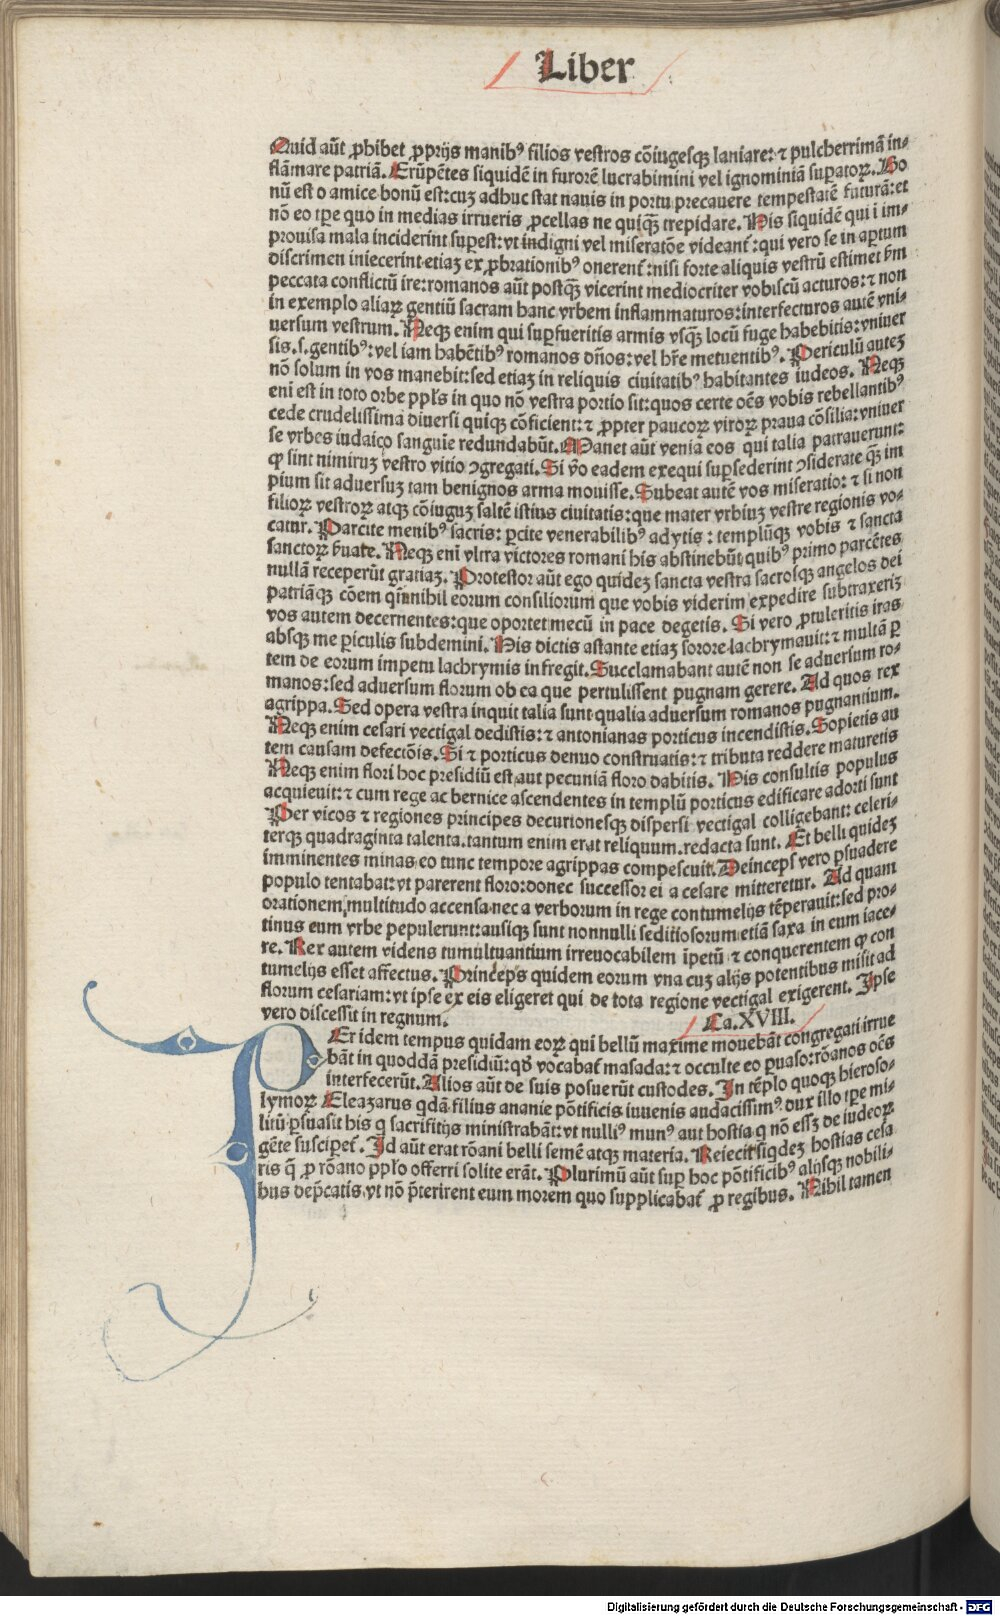 Liber
Quid aūt ꝓhibet ꝓprijs manibꝰ filios vestros cōiugesqꝫ laniare: ⁊ pulcherrimā in-
flāmare patriā. Erūpētes siquidē in furorē lucrabimini vel ignominiā suꝑatoꝝ. Bo
nū est o amice bonū est: cuꝫ adhuc stat nauis in portu precauere tempestatē futurā: et
nō eo tꝑe quo in medias irrueris ꝓcellas ne quiqꝫ̄ trepidare. His siquidē qui i im-
prouisa mala inciderint suꝑest: vt indigni vel miseratōe videant̄: qui vero se in aꝑtum
discrimen iniecerint etiaꝫ ex ꝓbrationibꝰ onerent̄: nisi forte aliquis vestrū estimet b̄m
peccata conflictū ire: romanos aūt postqꝫ̄ vicerint mediocriter vobiscū acturos: ⁊ non
in exemplo aliaꝝ gentiū sacram hanc vrbem inflammaturos: interfecturos autē vni-
uersum vestrum. Neqꝫ enim qui suꝑfueritis armis vsqꝫ̄ locū fuge habebitis: vniuer
sis .s. gentibꝰ: vel iam habētibꝰ romanos dn̄os: vel hr̄e metuentibꝰ. Periculū auteꝫ
nō solum in vos manebit: sed etiaꝫ in reliquis ciuitatibꝰ habitantes iudeos. Neqꝫ
eni est in toto orbe ppl̄s in quo nō vestra portio sit: quos certe oēs vobis rebellantibꝰ
cede crudelissima diuersi quiqꝫ cōficient: ⁊ ꝓpter paucoꝝ viroꝝ praua cōsilia: vniuer
se vrbes iudaico sanguīe redundabūt. Manet aūt venia eos qui talia patrauerunt:
ꝙ sint nimiruꝫ vestro vitio ꝯgregati. Si v̄o eadem exequi suꝑsederint ꝯsiderate qꝫ̄ im
pium sit aduersuꝫ tam benignos arma mouisse. Subeat autē vos miseratio: ⁊ si non
filioꝝ vestroꝝ atqꝫ cōiuguꝫ saltē istius ciuitatis: que mater vrbiuꝫ vestre regionis vo-
catur. Parcite menibꝰ sacris: ꝑcite venerabilibꝰ adytis: templūqꝫ vobis ⁊ sancta
sanctoꝝ ẜuate. Neqꝫ eni vltra victores romani his abstinebūt quibꝰ primo parcētes
nullā receperūt gratiaꝫ. Protestor aūt ego quideꝫ sancta vestra sacrosqꝫ angelos dei
patriāqꝫ cōem qn̄nihil eorum consiliorum que vobis viderim expedire subtraxeriꝫ
vos autem decernentes: que oportet mecū in pace degetis. Si vero ꝓtuleritis iras
absqꝫ me ꝑiculis subdemini. His dictis astante etiaꝫ sorore lachrymauit: ⁊ multā ꝑ
tem de eorum impetu lachrymis infregit. Succlamabant autē non se aduersum ro-
manos: sed aduersum florum ob ea que pertulissent pugnam gerere. Ad quos rex
agrippa. Sed opera vestra inquit talia sunt qualia aduersum romanos pugnantium.
Neqꝫ enim cesari vectigal dedistis: ⁊ antonianas porticus incendistis. Sopietis au
tem causam defectōis. Si ⁊ porticus denuo construatis: ⁊ tributa reddere maturetis
Neqꝫ enim flori hoc presidiū est aut pecuniā floro dabitis. His consultis populus
acquieuit: ⁊ cum rege ac bernice ascendentes in templū porticus edificare adorti sunt
Per vicos ⁊ regiones principes decurionesqꝫ dispersi vectigal colligebant: celeri-
terqꝫ quadraginta talenta. tantum enim erat reliquum. redacta sunt. Et belli quideꝫ
imminentes minas eo tunc tempore agrippas compescuit. Deinceps vero ꝑsuadere
populo tentabat: vt parerent floro: donec successor ei a cesare mitteretur. Ad quam
orationem multitudo accensa nec a verborum in rege contumelijs tēperauit: sed pro-
tinus eum vrbe pepulerunt: ausiqꝫ sunt nonnulli seditiosorum etiā saxa in eum iace-
re. Rex autem videns tumultuantium irreuocabilem īpetū ⁊ conquerentem ꝙ con
tumelijs esset affectus. Princeps quidem eorum vna cuꝫ alijs potentibus misit ad
florum cesariam: vt ipse ex eis eligeret qui de tota regione vectigal exigerent. Ipse
vero discessit in regnum.
Ca. XVIII.
PEr idem tempus quidam eoꝝ qui bellū maxime mouebāt congregati irrue
bāt in quoddā presidiū: qd̄ vocabat̄ masada: ⁊ occulte eo ꝑuaso: rōanos oēs
interfecerūt. Alios aūt de suis posuerūt custodes. In tēplo quoqꝫ hieroso-
lymoꝝ Eleazarus qdā filius ananie pōtificis iuuenis audacissimꝰ dux illo tꝑe mi-
litū ꝑsuasit his q̄ sacrifitijs ministrabāt: vt nulliꝰ munꝰ aut hostia q̄ nō esſꝫ de iudeoꝝ
gēte susciꝑet̄. Id aūt erat rōani belli semē atqꝫ materia. Reiecit siqdeꝫ hostias cesa
ris q̄ ꝓ rōano ppl̄o offerri solite erāt. Plurimū aūt suꝑ hoc pōtificibꝰ alijsqꝫ nobili-
bus dep̄catis vt nō p̄terirent eum morem quo supplicabat̄ ꝓ regibus. Nihil tamen
Digitalisierung gefördert durch die Deutsche Forschungsgemeinschaft - DFG